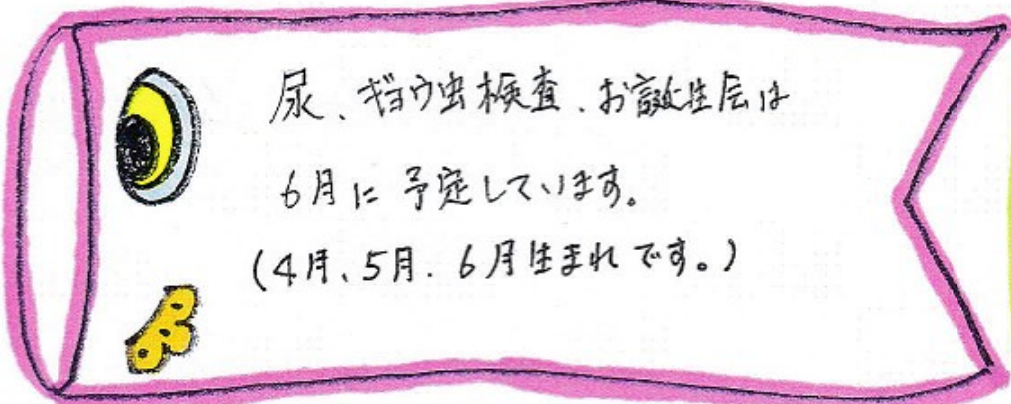 尿、ギョウ虫検査、お誕生会は
6月に予定しています。
(4月、5月、6月生まれです。)